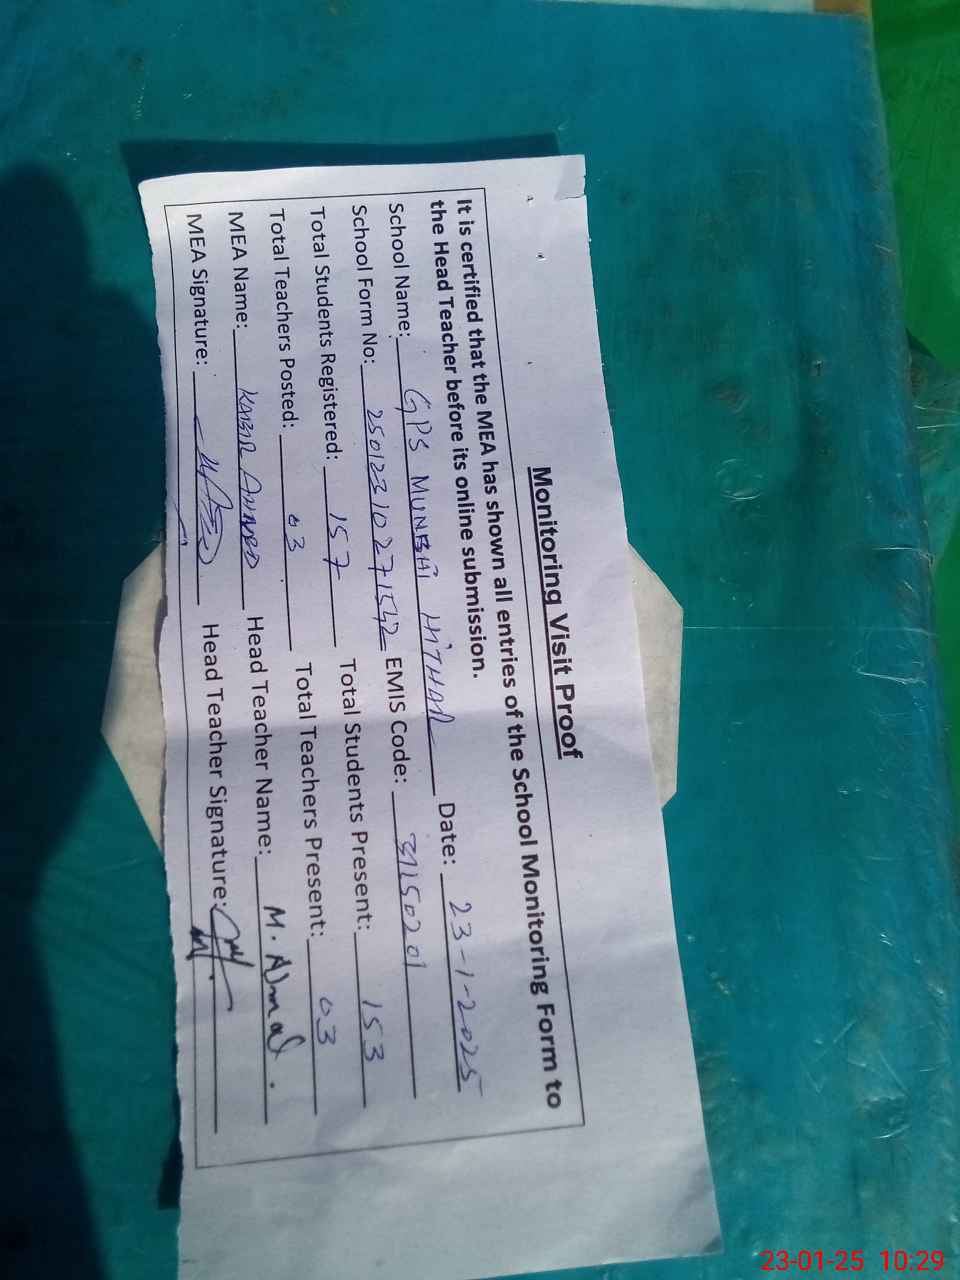 Monitoring Visit Proof
It is certified that the MEA has shown all entries of the School Monitoring Form to
the Head Teacher before its online submission.
School Name: GPS MUNBHI HITHAR Date: 23-1-2025
School Form No: 25012310271542 EMIS Code: 31150201
Total Students Registered: 157 Total Students Present: 153
Total Teachers Posted: 03 Total Teachers Present: 03
MEA Name: KABIR AHMED Head Teacher Name: M. Ajmal.
MEA Signature: Head Teacher Signature:
23-01-25 10:29